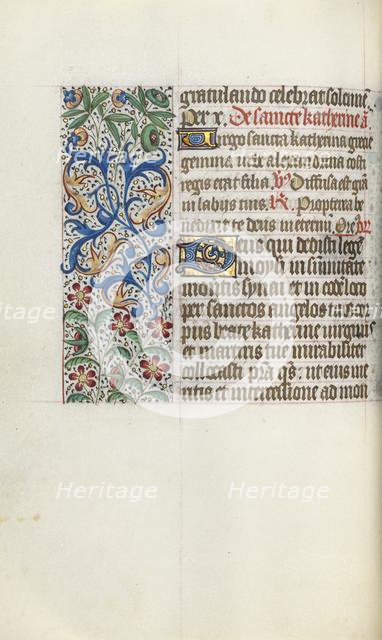 gratulando celebrat solenne
per x. De sancte katherine ā
Virgo sancta katherina grecie
gemma urbe alexandrina costi
regis erat filia. Vs Diffusa est grā
in labijs tuis. Rx. Propterea be
nedixit te deus in eternū. Oreꝫ
Deus qui dedisti legē
moysi in sūmitate
montis synai et in eodē loco
per sanctos angelos tuos cor
pus beate katherine virginis
et martiris tue mirabiliter
collocasti pra qs. ut eius me
ritis et intercessione ad mon
Heritage Heritage
Heritage Heritage